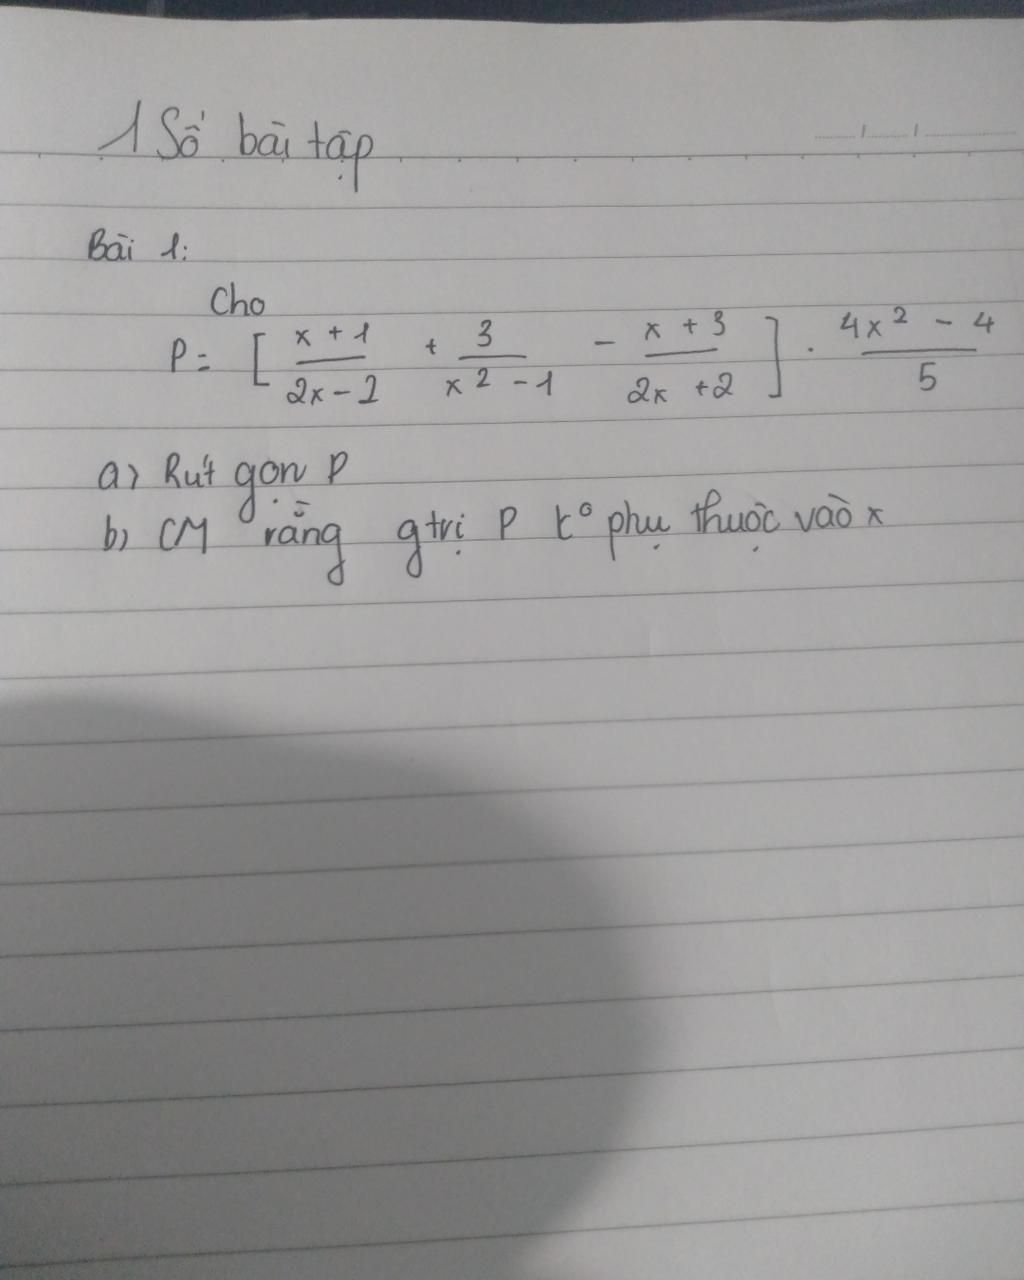 1 Số bài tập
Bài 1:
Cho
P = [ (x + 1)/(2x - 2) + 3/(x² - 1) - (x + 3)/(2x + 2) ] . (4x² - 4)/5
a) Rút gọn P
b) CM rằng gtrị P k° phụ thuộc vào x